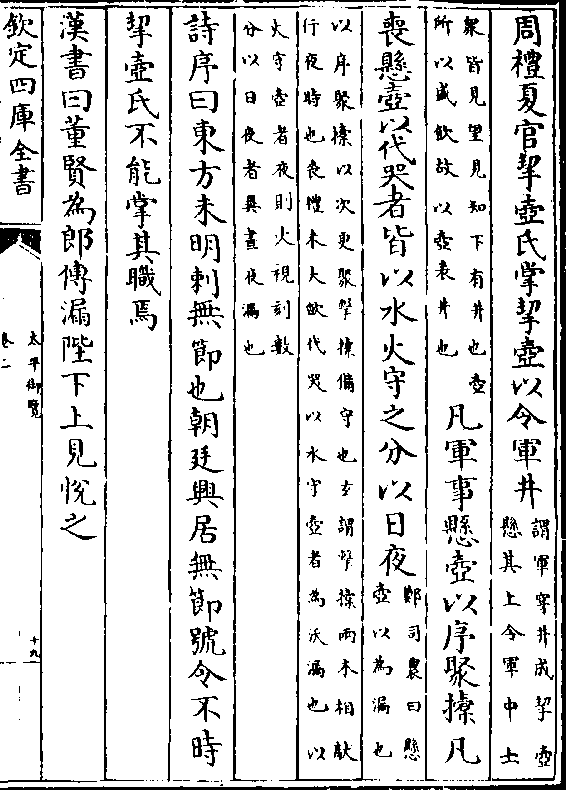 周禮夏官挈壺氏掌挈壺以令軍井謂軍穿井成挈壺懸其上令軍中士
衆皆見望見知下有井也壺所以盛飲故以壺表井也凡軍事懸壺以序聚㯓凡
喪懸壺以代哭者皆以水火守之分以日夜鄭司農曰懸壺以為漏也
以序聚㯓以次更聚擊㯓備守也玄謂擊㯓兩木相敲行夜時也喪禮未大斂代哭以水守壺者為沃漏也以
火守壺者夜則火視刻數分以日夜者異晝夜漏也
詩序曰東方未明刺無節也朝廷興居無節號令不時
挈壺氏不能掌其職焉
漢書曰董賢為郎傳漏陛下上見悅之
欽定四庫全書
太平御覽
卷二
十九